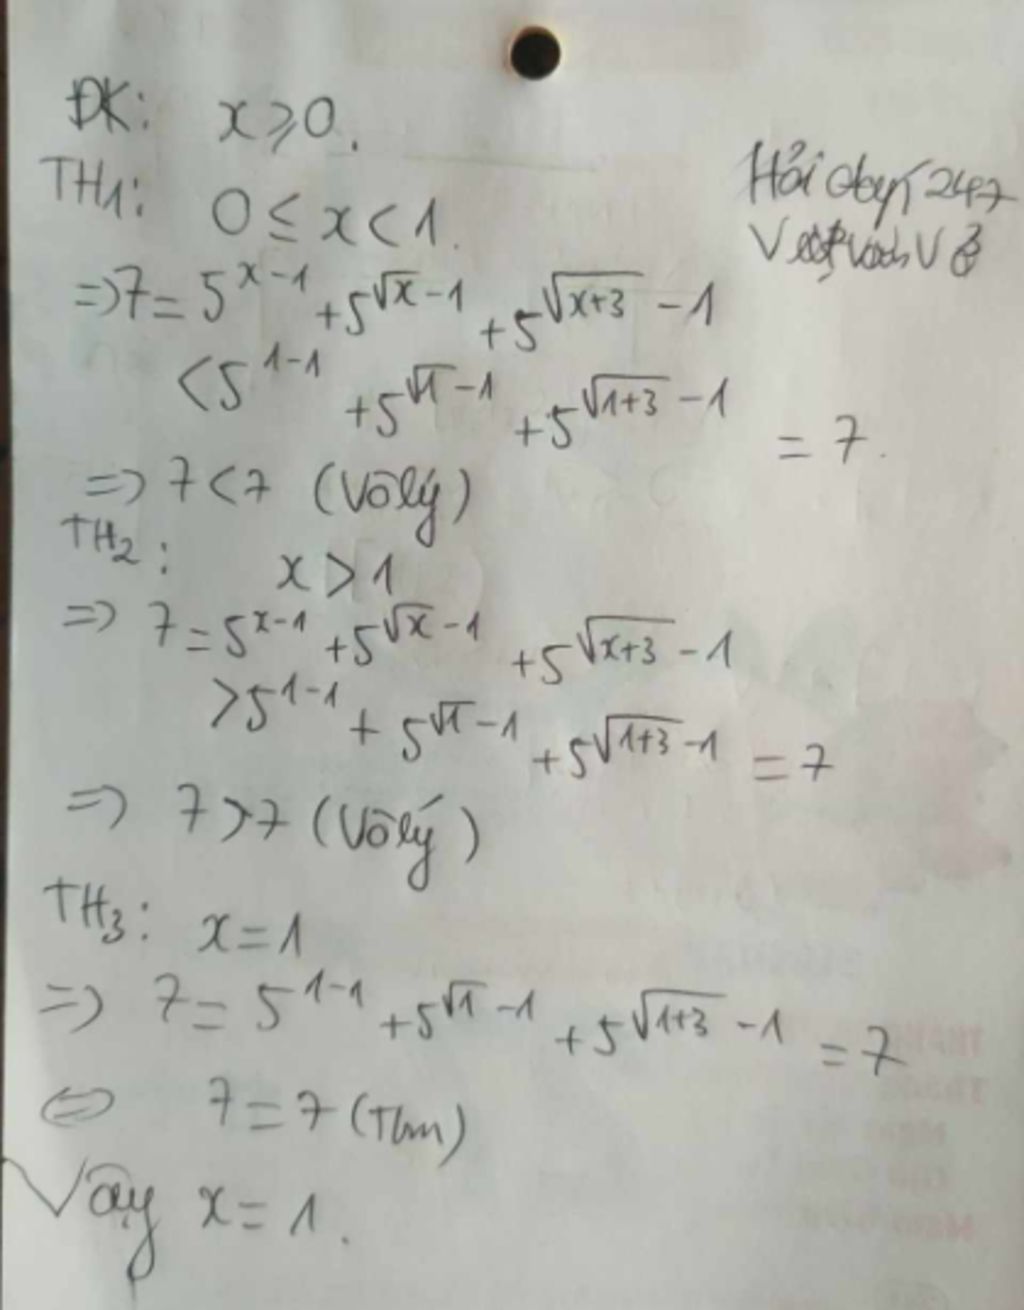 ĐK: x ≥ 0.
TH1: 0 ≤ x < 1.
Hỏi 247
=> 7 = 5^{x-1} + 5^{√x - 1} + 5^{√(x+3) - 1}
< 5^{1-1} + 5^{√1 - 1} + 5^{√(1+3) - 1} = 7.
=> 7 < 7 (Vô lý)
TH2: x > 1
=> 7 = 5^{x-1} + 5^{√x - 1} + 5^{√(x+3) - 1}
> 5^{1-1} + 5^{√1 - 1} + 5^{√(1+3) - 1} = 7
=> 7 > 7 (Vô lý)
TH3: x = 1
=> 7 = 5^{1-1} + 5^{√1 - 1} + 5^{√(1+3) - 1} = 7
<=> 7 = 7 (Tm)
Vậy x = 1.